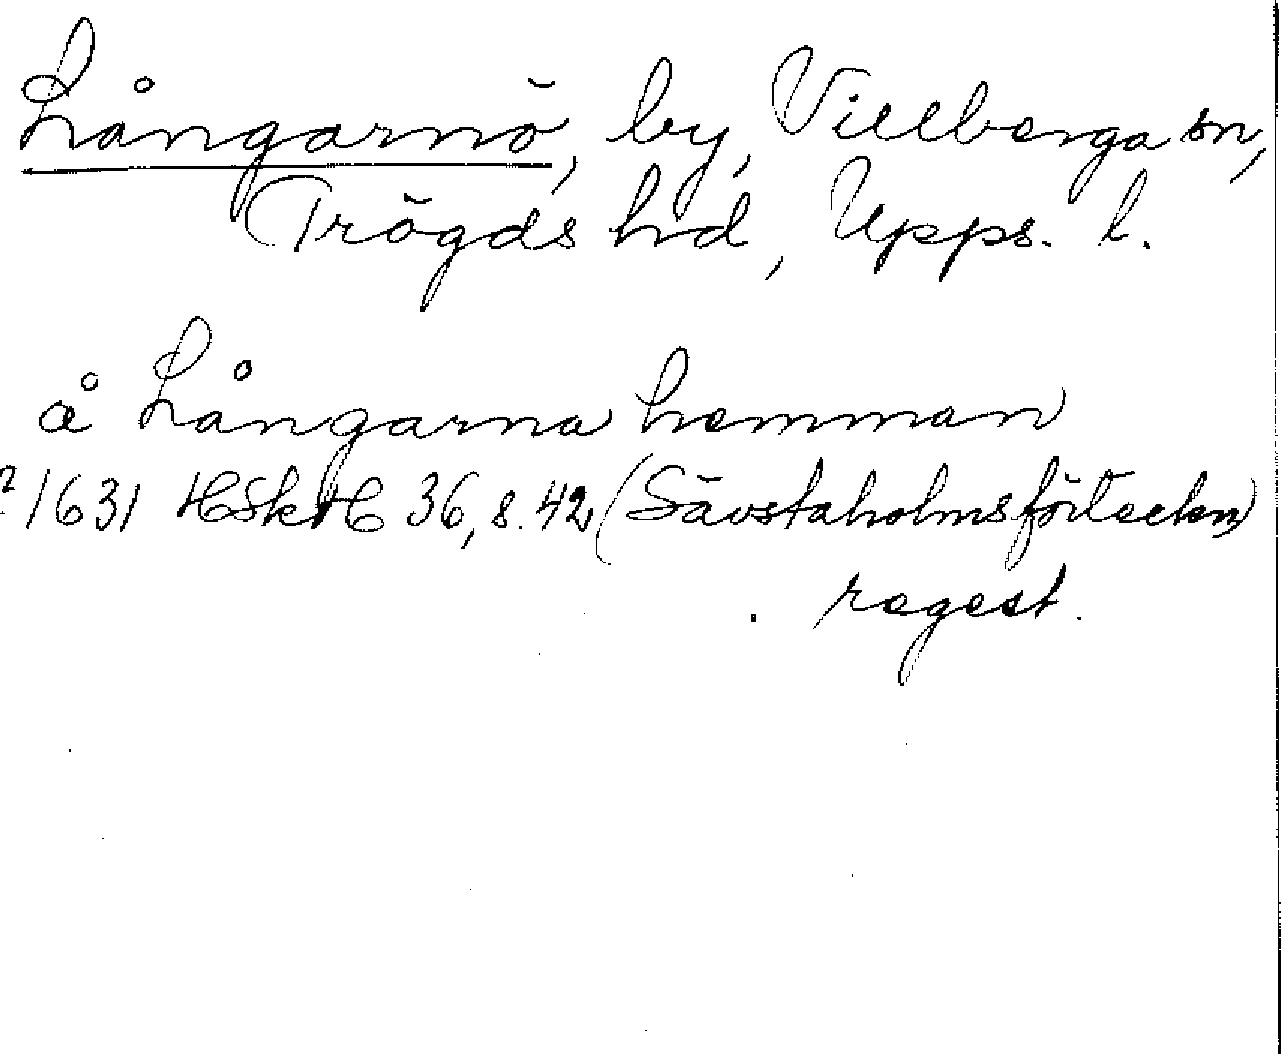 Långarnö, by, Villberga sn,
Trögds hd, Upps. l.
å Långarna hemman
1631 HSkH 36, s. 42 (Sävstaholmsförteckn)
regest.